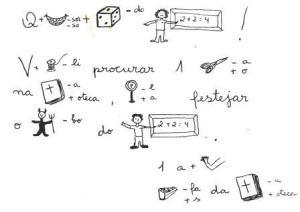 Q + - sor - so + - do 2+2=4 !
V + - li procurar 1 - a + o
na - a + oteca , + a festejar
o - bo do 2+2=4 .
1 a +
- fa + s da - a + oteca